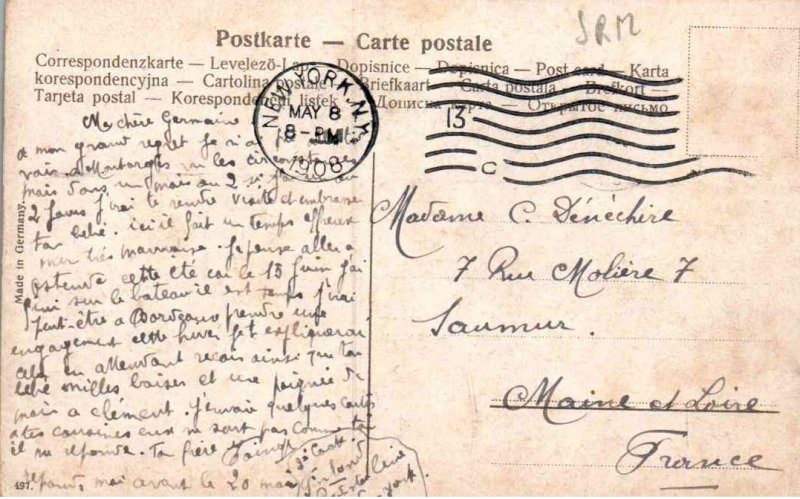 SRM
Postkarte — Carte postale
Correspondenzkarte — Levelező-Lap — Dopisnice — Dopisnica — Post card — Karta
korespondencyjna — Cartolina postale — Briefkaart — Carta postala — Brefkort —
Tarjeta postal — Korespondenční lístek — Дописна карта — Открытое письмо
NEW YORK, N.Y.
MAY 8
8-PM
1908
13
C
Made in Germany.
Ma chère Germaine
a mon grand regret je n'ai pu
vu les circonstances
mais dans un mois ou 2 si j'ai
2 jours j'irai te rendre visite et embrasser
ton bébé. ici il fait un temps affreux
mer très mauvaise. Je pense aller a
ostende cette été car le 13 juin j'ai
fini sur le bateau il est temps j'irai
peut-être a Bordeaux prendre une
engagement cette hiver je t'expliquerai
cela en attendant recois ainsi que ton
bébé milles baises et une poignée de
main a clément. J'envoie quelques cartes
a tes cousines eux ne sont pas comme toi
il me réponde. Ta frère
réponds moi avant le 20 mai
york
497.
Madame C. Dénéchère
7 Rue Molière 7
Saumur.
Maine et Loire
France